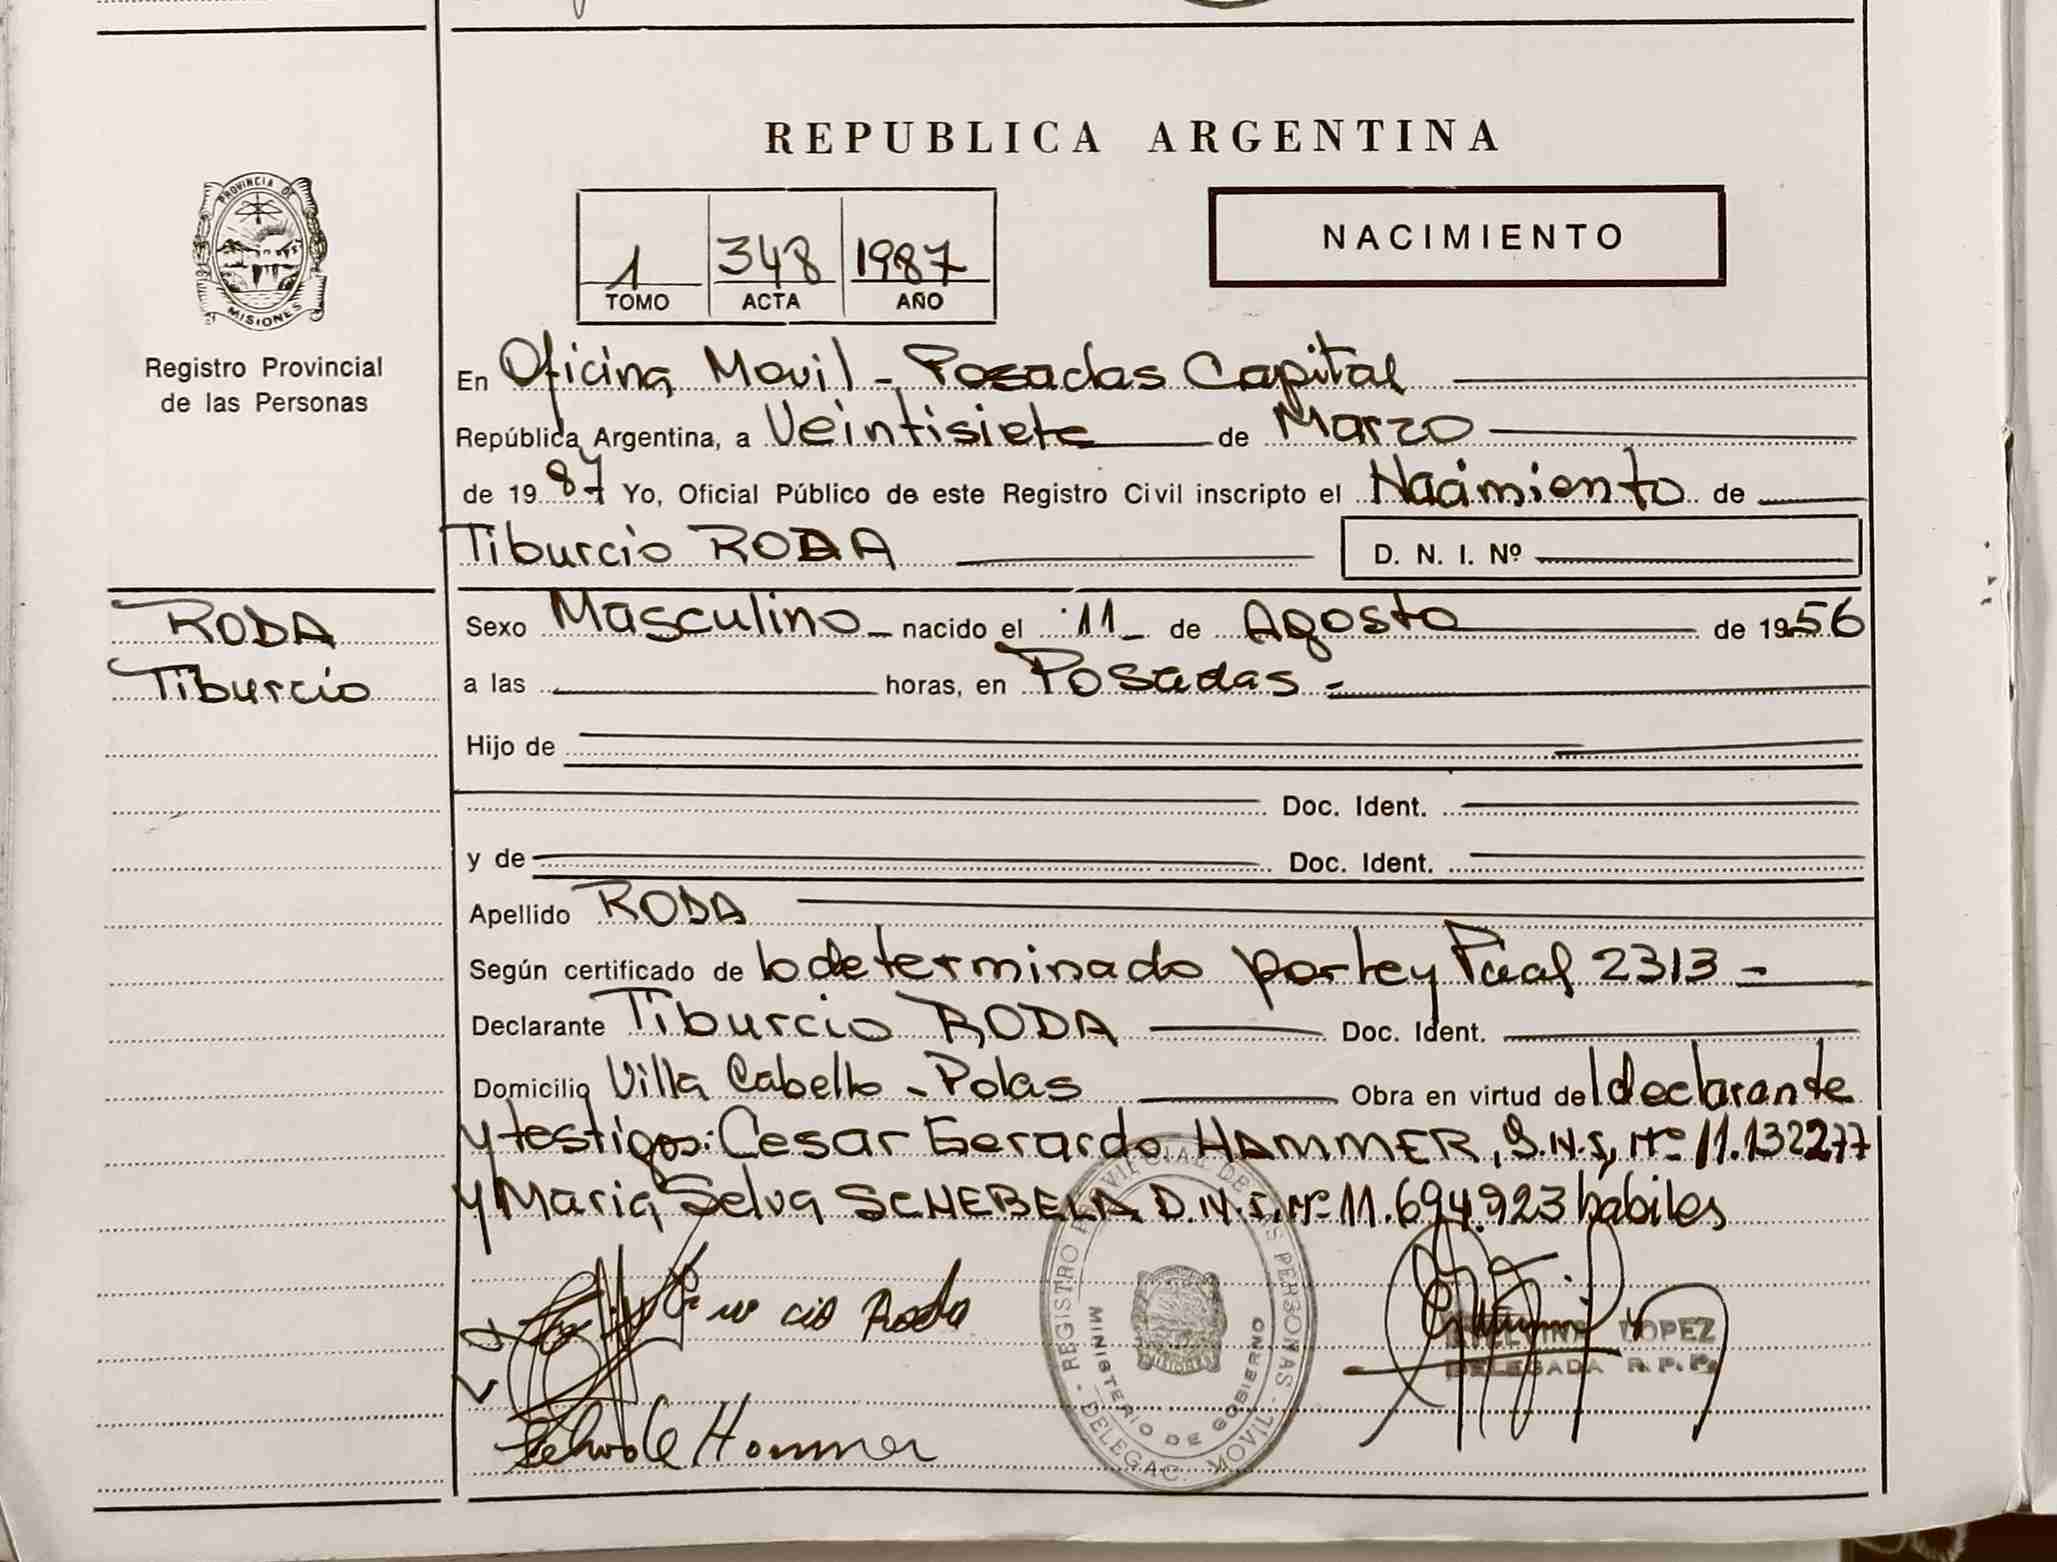 REPUBLICA ARGENTINA
PROVINCIA DE MISIONES
Registro Provincial
de las Personas
1 348 1987
TOMO ACTA AÑO
NACIMIENTO
En Oficina Movil - Posadas Capital
República Argentina, a Veintisiete de Marzo
de 1987 Yo, Oficial Público de este Registro Civil inscripto el Nacimiento de
Tiburcio RODA D. N. I. Nº
RODA
Tiburcio
Sexo Masculino - nacido el 11 - de Agosto de 1956
a las horas, en Posadas -
Hijo de
Doc. Ident.
y de Doc. Ident.
Apellido RODA
Según certificado de lo determinado por Ley Pcial 2313 -
Declarante Tiburcio RODA Doc. Ident.
Domicilio Villa Cabello - Pdas Obra en virtud del declarante
y testigos: Cesar Gerardo HAMMER, D.N.I, Nº 11.132277
y Maria Selva SCHEBELA D.N.I. Nº 11.694.923 hábiles
Roda
LOPEZ
DELEGADA R. P. P.
Hammer
REGISTRO PROVINCIAL DE LAS PERSONAS - DELEGAC. MOVIL -
MINISTERIO DE GOBIERNO